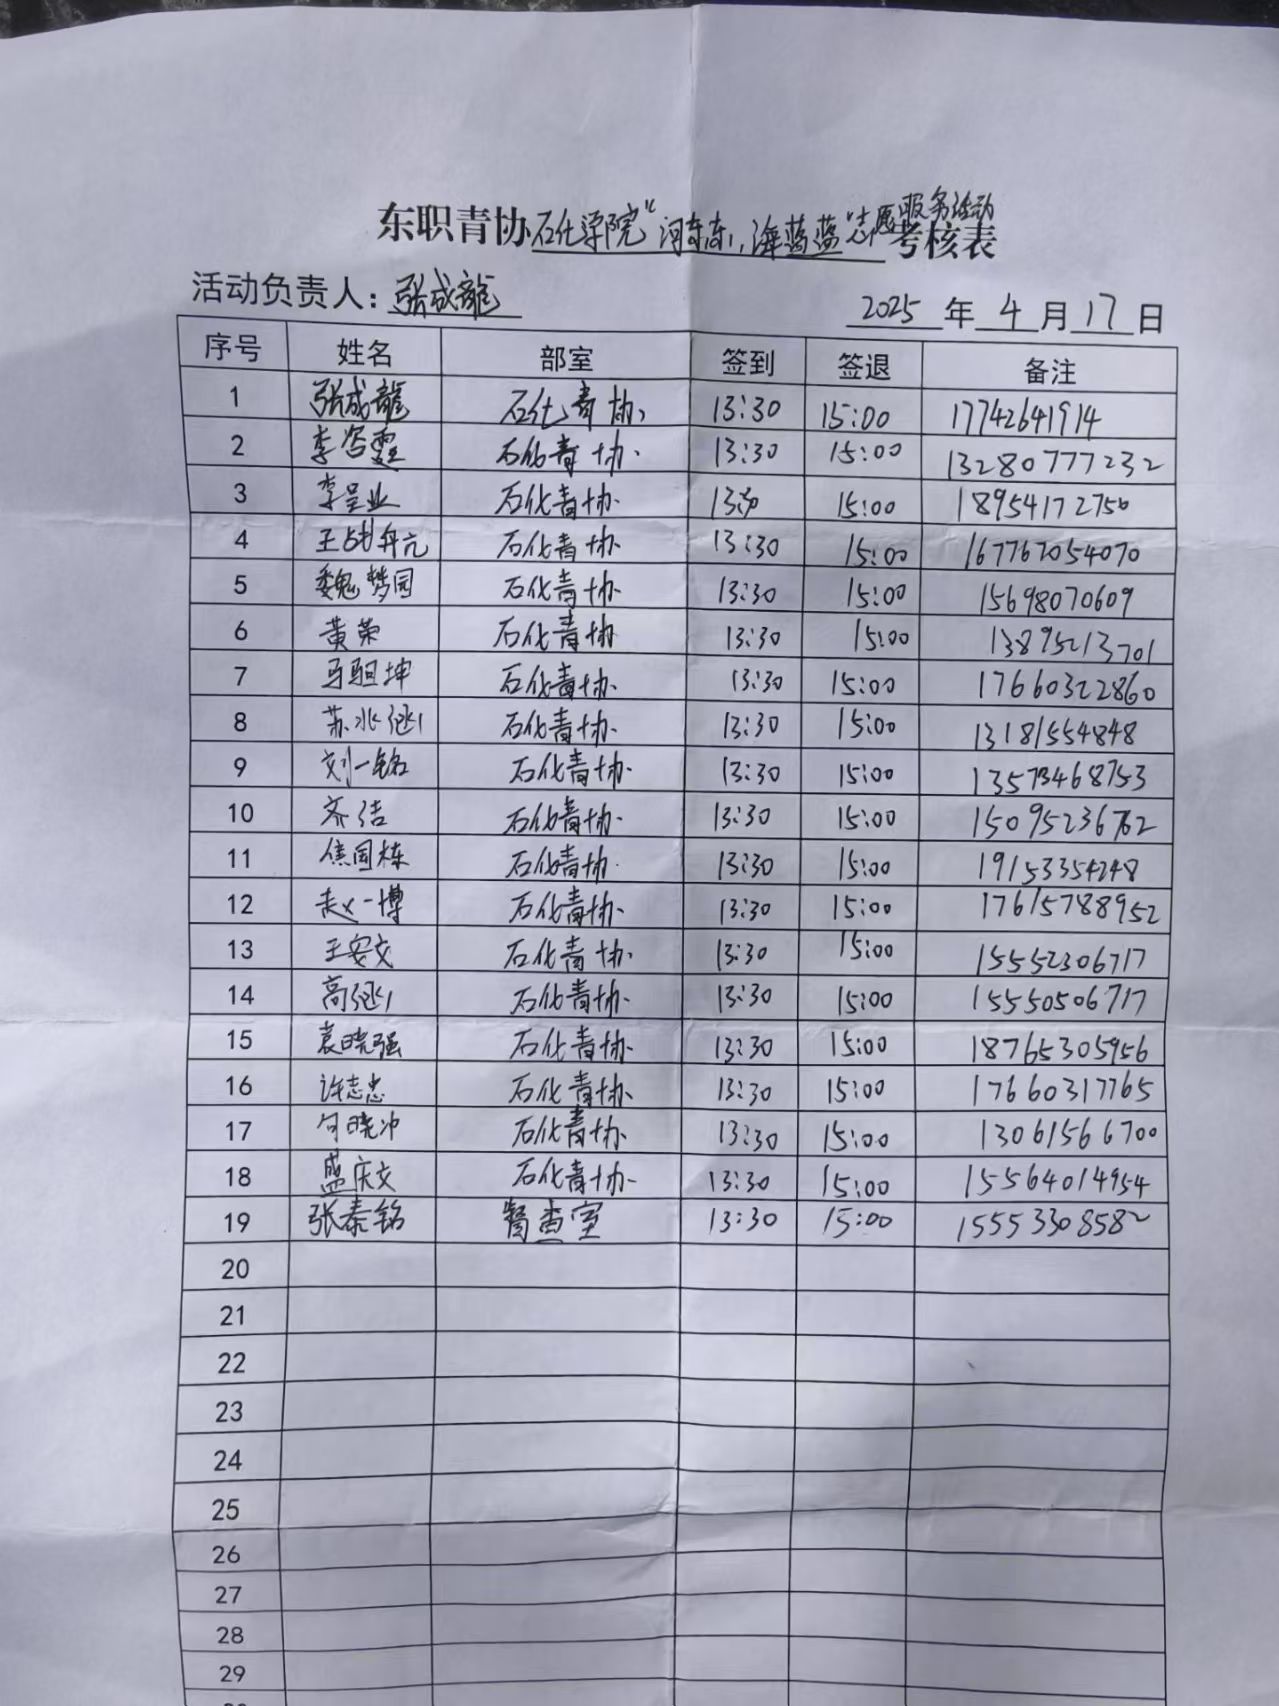 东职青协石化学院"河东东,海蓝蓝"志愿服务活动考核表
活动负责人:张成龍 2025年4月17日
序号 姓名 部室 签到 签退 备注
1 张成龍 石化青协 13:30 15:00 17742641914
2 李雯 石化青协 13:30 15:00 13280777232
3 李呈业 石化青协 15:00 18954172750
4 王战舟元 石化青协 13:30 15:00 167762054070
5 魏梦园 石化青协 13:30 15:00 15698070609
6 黄荣 石化青协 13:30 15:00 13895213701
7 马驵坤 石化青协 13:30 15:00 17660322860
8 苏兆 石化青协 13:30 15:00 13181554848
9 刘一铭 石化青协 13:30 15:00 13573468753
10 齐洁 石化青协 13:30 15:00 15095236762
11 焦国栋 石化青协 13:30 15:00 19153354248
12 赵一博 石化青协 13:30 15:00 17615788952
13 王安文 石化青协 13:30 15:00 15552306717
14 高 石化青协 13:30 15:00 15550506717
15 袁晓强 石化青协 13:30 15:00 18765305956
16 许志忠 石化青协 13:30 15:00 17660317765
17 句晓冲 石化青协 13:30 15:00 13061566700
18 盛庆文 石化青协 13:30 15:00 15564014954
19 张泰铭 督查室 13:30 15:00 15553308582
20
21
22
23
24
25
26
27
28
29